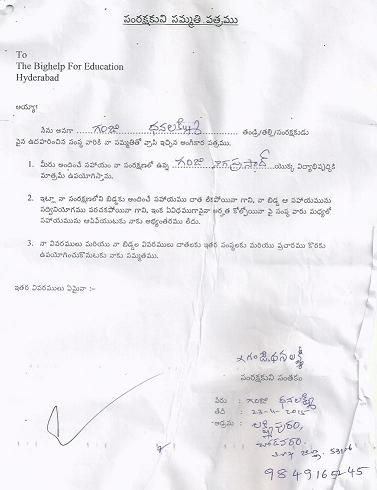 సంరక్షకుని సమ్మతి పత్రము
To
The Bighelp For Education
Hyderabad
అయ్యా!
నేను అనగా గంజి ధనలక్ష్మి తండ్రి/తల్లి/సంరక్షకుడు
పైన ఉదహరించిన సంస్థ వారికి నా సమ్మతితో వ్రాసి ఇచ్చిన అంగీకార పత్రము.
1. మీరు అందించే సహాయం నా సంరక్షణలో ఉన్న గంజి నాగప్రసాద్ యొక్క విద్యాభివృద్ధికి
మాత్రమే ఉపయోగిస్తాను.
2. ఇట్లా నా సంరక్షణలోని బిడ్డకు అందించే సహాయము దాత లేకపోయినా గాని, నా బిడ్డ ఆ సహాయమును
సద్వినియోగము పరచకపోయినా గాని, ఇంక ఏవిధముగానైనా అర్హత కోల్పోయినా పై సంస్థ వారు మధ్యలో
సహాయమును ఆపివేయుటకు నాకు అభ్యంతరము లేదు.
3. నా వివరములు మరియు నా బిడ్డల వివరములు దాతలకు ఇతర సంస్థలకు మరియు ప్రచారము కొరకు
ఉపయోగించుకొనుటకు నాకు సమ్మతము.
ఇతర వివరములు ఏమైనా :-
x గంజి.ధనలక్ష్మి
సంరక్షకుని సంతకం
పేరు : గంజి ధనలక్ష్మి
తేదీ : 23-4-2015
అడ్రసు : లక్ష్మీపురం,
చోడవరం.
9849165245